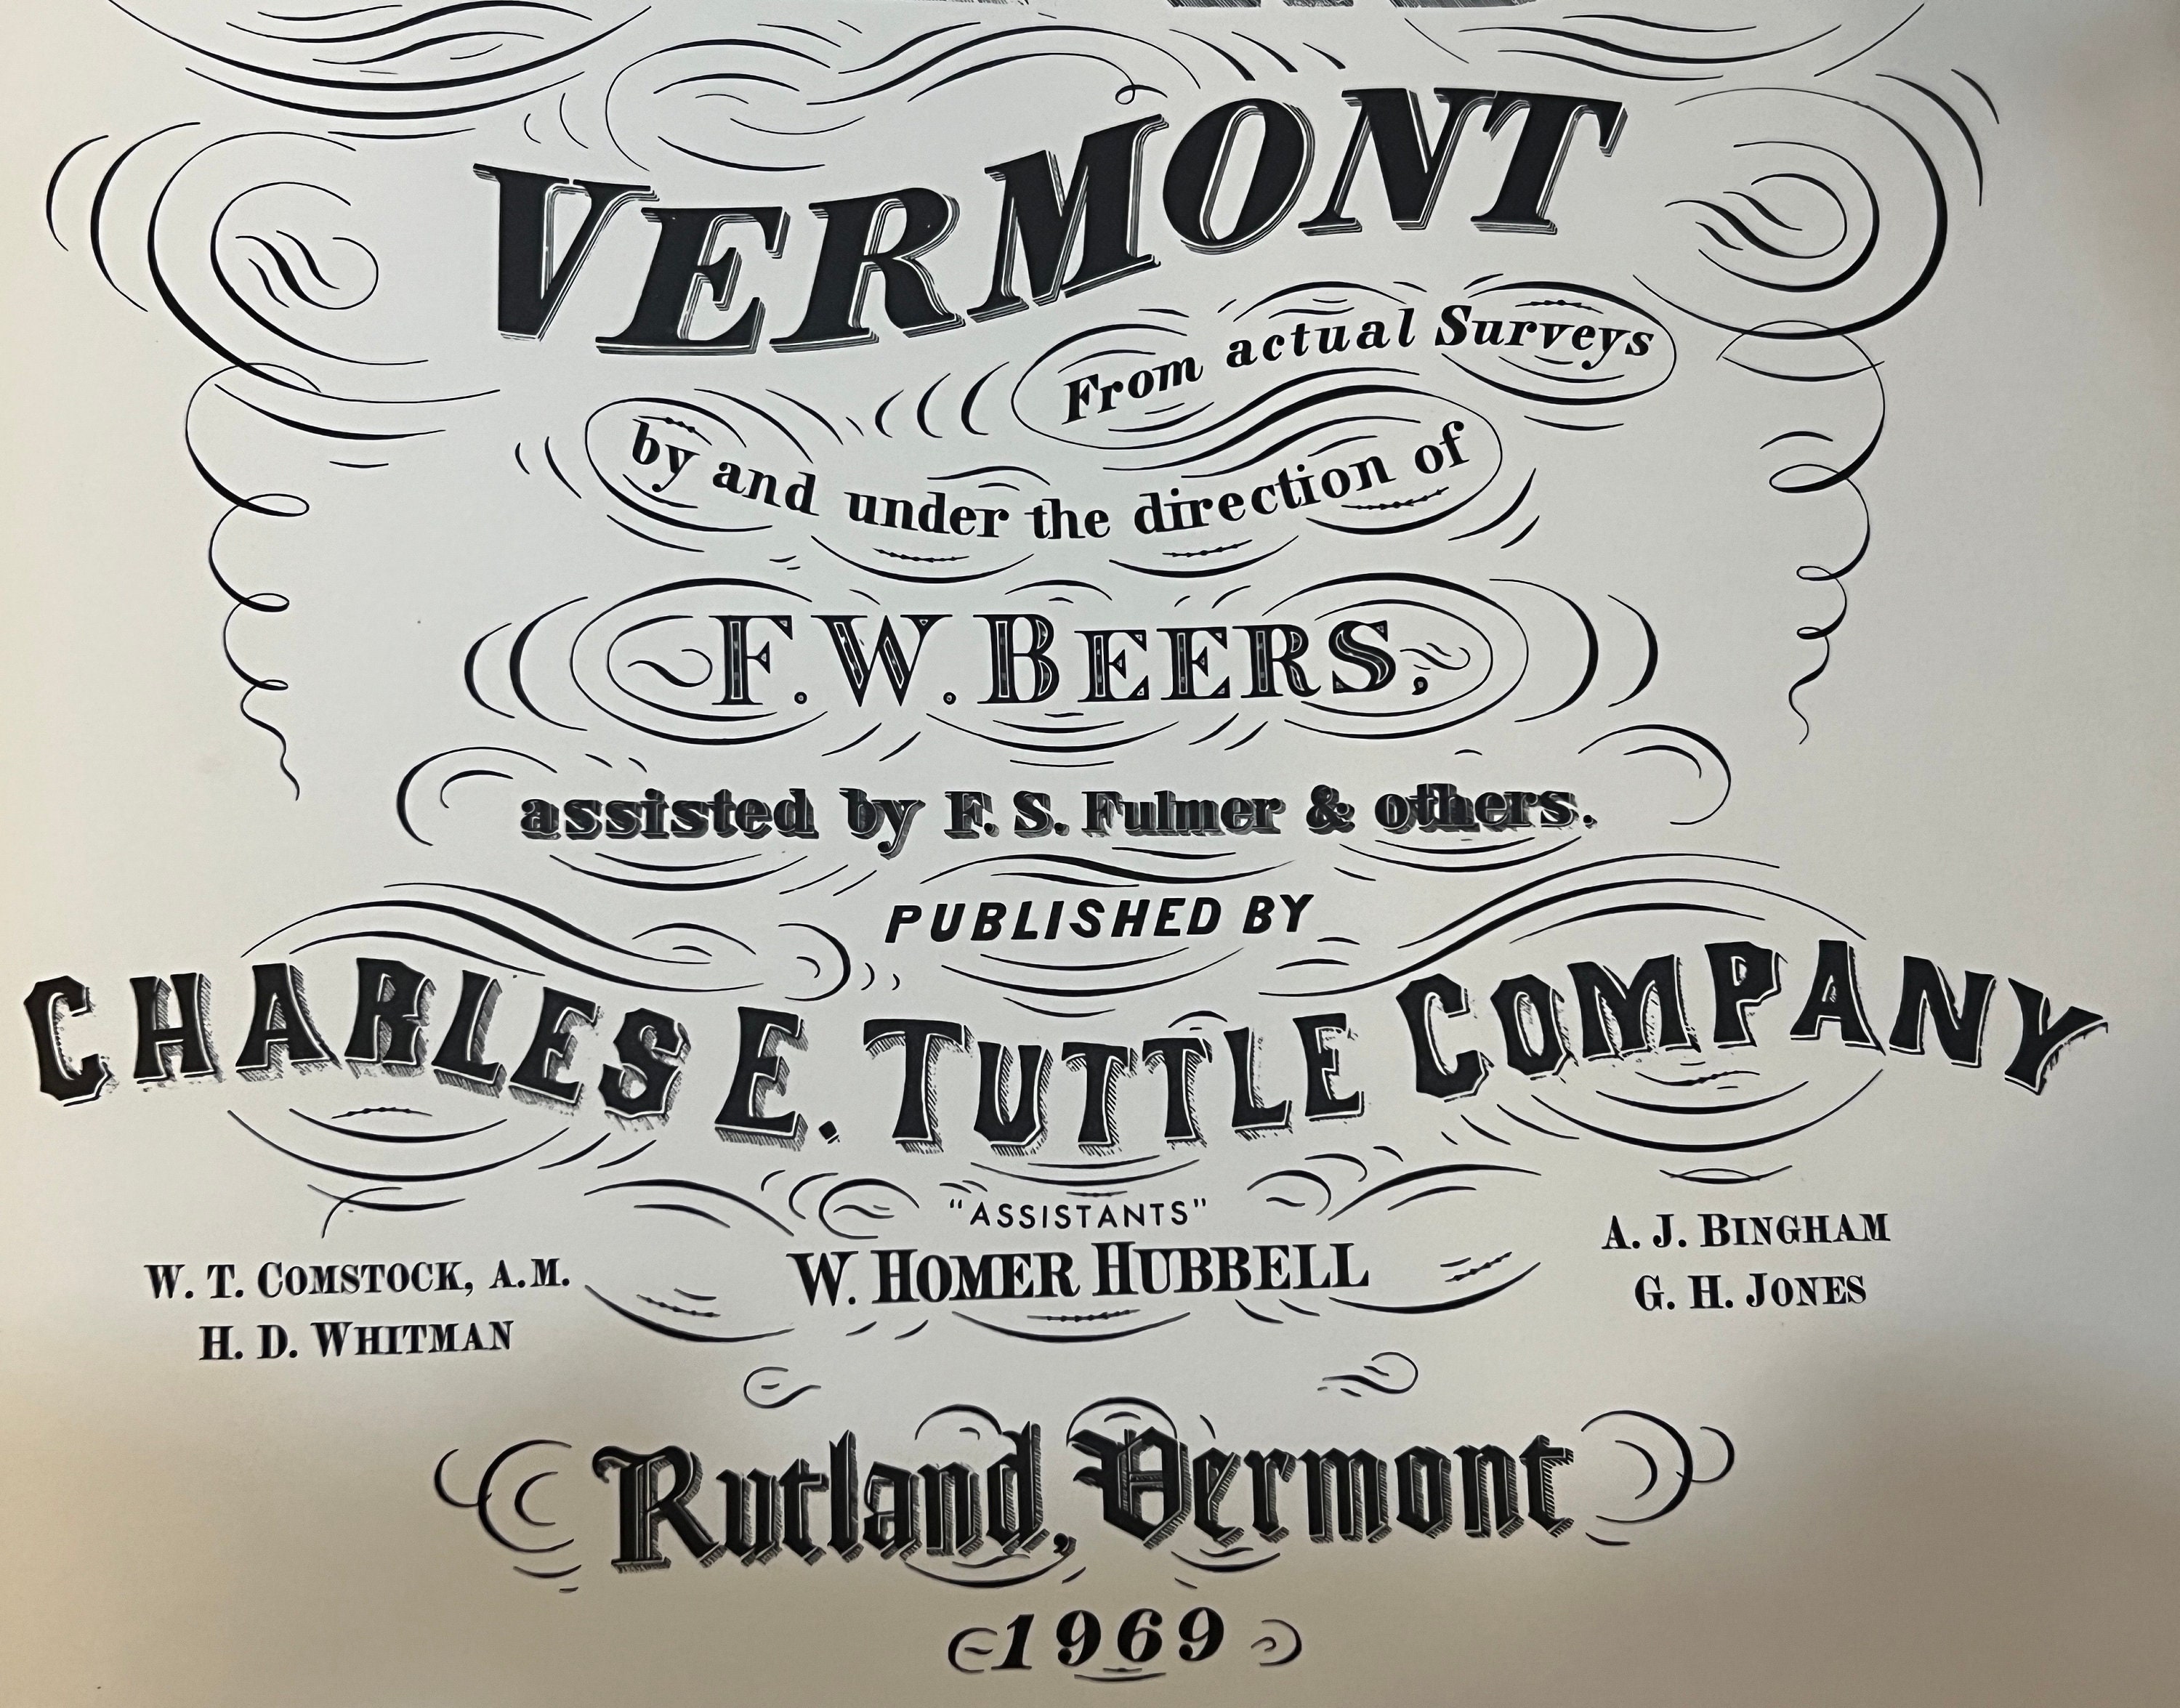 VERMONT
From actual Surveys
by and under the direction of
F. W. BEERS,
assisted by F. S. Fulmer & others.
PUBLISHED BY
CHARLES E. TUTTLE COMPANY
"ASSISTANTS"
W. T. COMSTOCK, A.M.
H. D. WHITMAN
W. HOMER HUBBELL
A. J. BINGHAM
G. H. JONES
Rutland, Vermont
1969